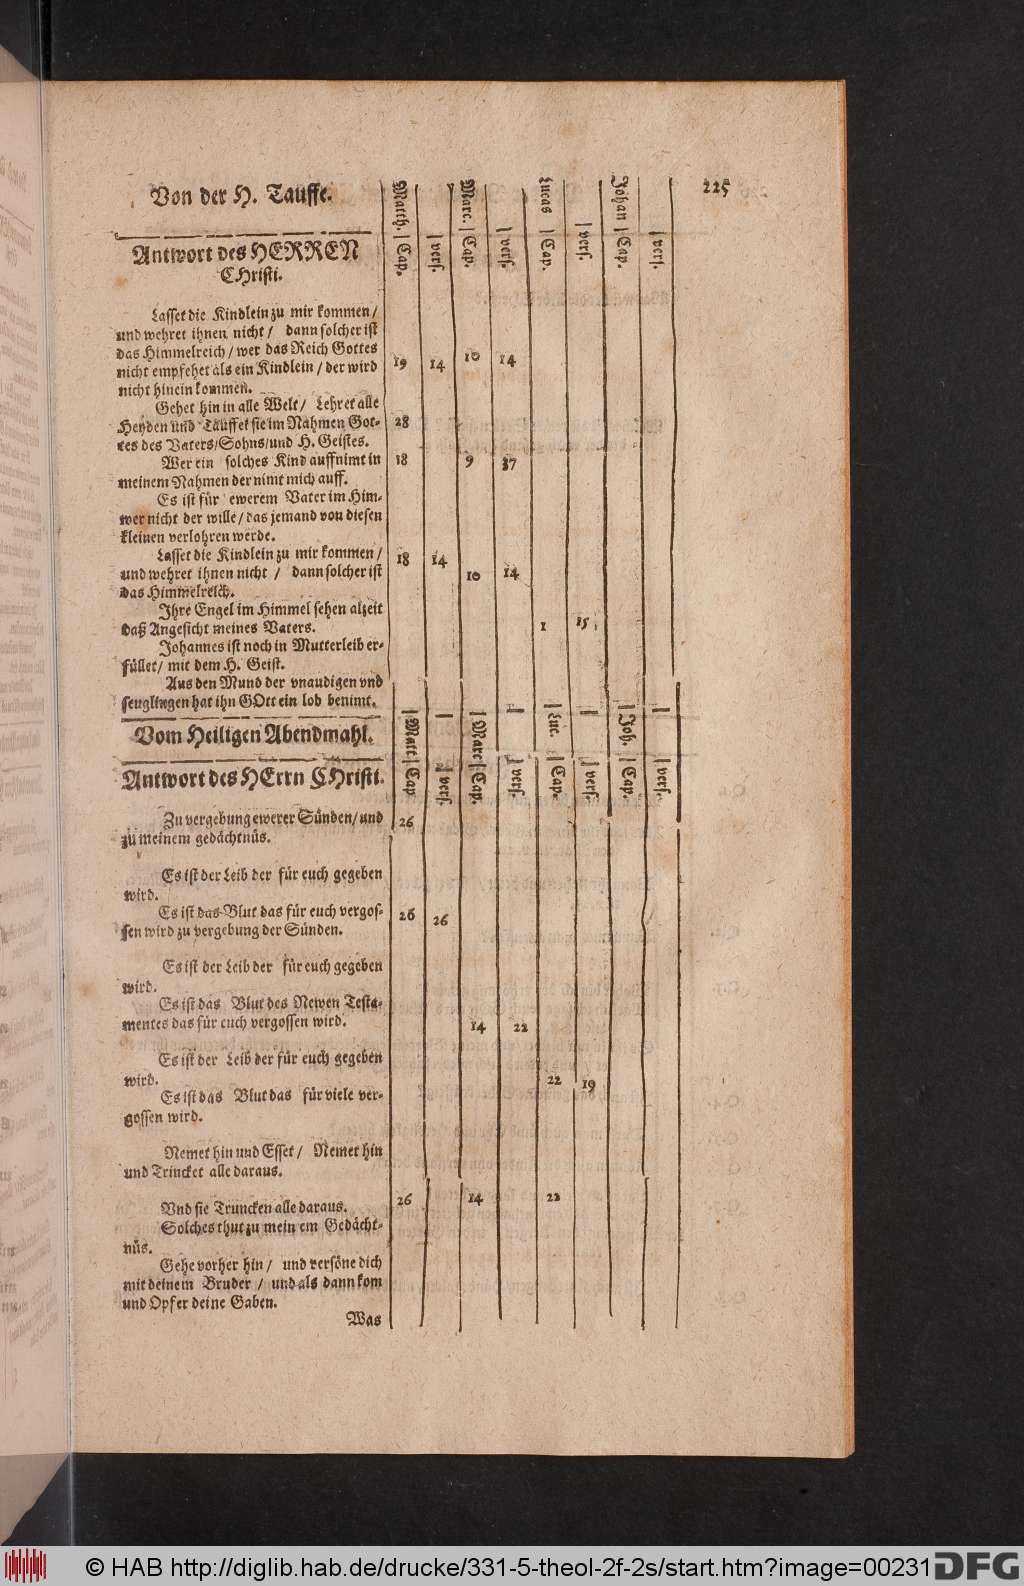 225
Von der H. Tauffe.
Matth. Cap. vers. Marc. Cap. vers. Lucas Cap. vers. Johan Cap. vers.
Antwort des HERREN
CHristi.
Lasset die Kindlein zu mir kommen /
und wehret ihnen nicht / dann solcher ist
das Himmelreich / wer das Reich Gottes
nicht empfehet als ein Kindlein / der wird 19 14 10 14
nicht hinein kommen.
Gehet hin in alle Welt / Lehret alle
Heyden und Täuffet sie im Nahmen Got- 28
tes des Vaters/Sohns/und H. Geistes.
Wer ein solches Kind auffnimt in 18 9 37
meinem Nahmen der nimt mich auff.
Es ist für ewerem Vater im Him-
wer nicht der wille / das jemand von diesen
kleinen verlohren werde.
Lasset die Kindlein zu mir kommen / 18 14
und wehret ihnen nicht / dann solcher ist 10 14
das Himmelreich.
Ihre Engel im Himmel sehen alzeit
daß Angesicht meines Vaters. 1 15
Johannes ist noch in Mutterleib er-
füllet / mit dem H. Geist.
Aus den Mund der vnaudigen vnd
seuglingen hat ihn GOtt ein lob benimt.
Vom Heiligen Abendmahl.
Matt Cap vers. Marc Cap. vers. Luc. Cap. vers. Joh. Cap. vers.
Antwort des HErrn CHristi.
Zu vergebung ewerer Sünden/und 26
zu meinem gedächtnüs.
Es ist der Leib der für euch gegeben
wird.
Es ist das Blut das für euch vergos- 26 26
sen wird zu vergebung der Sünden.
Es ist der Leib der für euch gegeben
wird.
Es ist das Blut des Newen Testa-
mentes das für euch vergossen wird. 14 22
Es ist der Leib der für euch gegeben
wird. 22 19
Es ist das Blut das für viele ver-
gossen wird.
Nemet hin und Esset / Nemet hin
und Trincket alle daraus.
Vnd sie Truncken alle daraus. 26 14 22
Solches thut zu mein em Gedächt-
nüs.
Gehe vorher hin / und versöne dich
mit deinem Bruder / und als dann kom
und Opfer deine Gaben.
Was
© HAB http://diglib.hab.de/drucke/331-5-theol-2f-2s/start.htm?image=00231
DFG